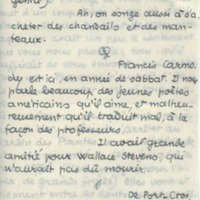 genièr).
Ah, on songe aussi à s'a
cheter des chandails et des man-
teaux.
Francis Carmo
dy est ici, en année de sabbat. Il nous
parle beaucoup des jeunes poètes
américains qu'il aime, et malheu-
reusement qu'il traduit mal, à la
façon des professeurs.
Il avait grande
amitié pour Wallace Stevens, qui
n'aurait pas dû mourir.
De Port-Cros,